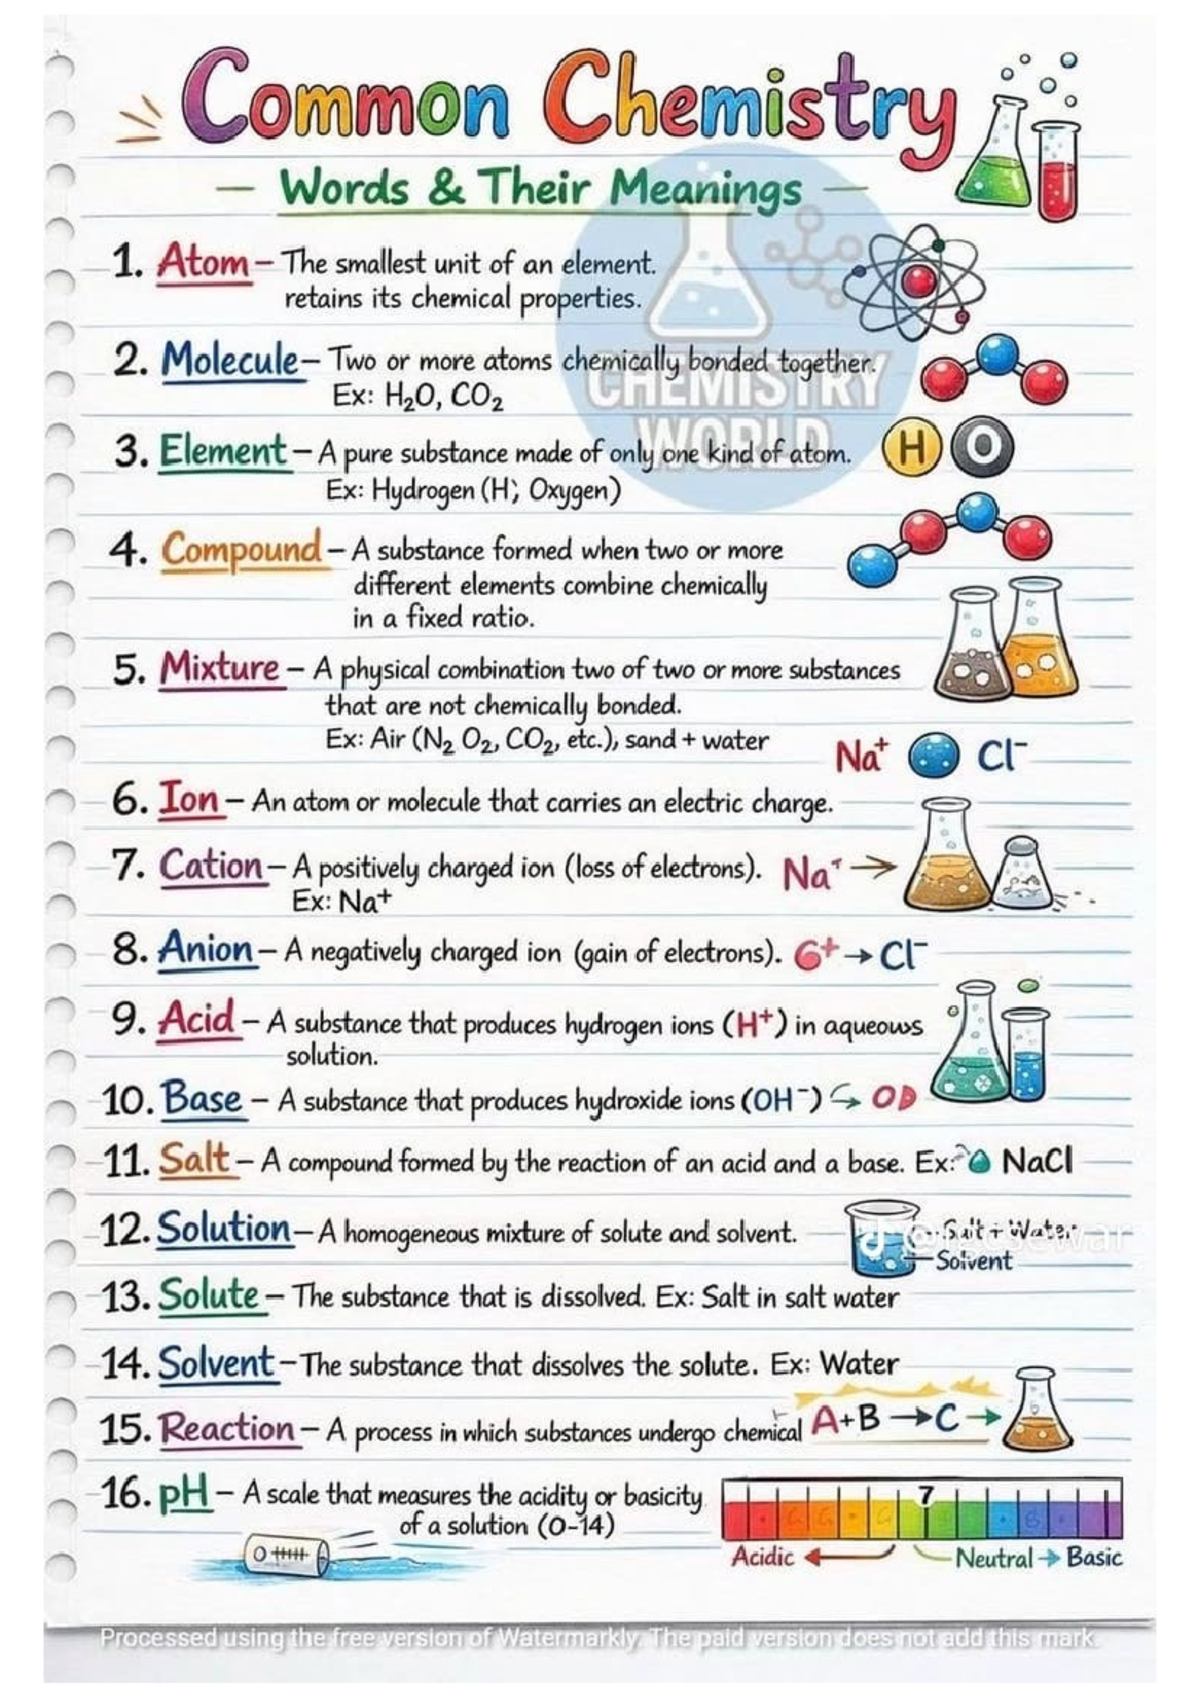 Common Chemistry
— Words & Their Meanings —
CHEMISTRY
WORLD
1. Atom – The smallest unit of an element.
retains its chemical properties.
2. Molecule – Two or more atoms chemically bonded together.
Ex: H₂O, CO₂
3. Element – A pure substance made of only one kind of atom.
H O
Ex: Hydrogen (H; Oxygen)
4. Compound – A substance formed when two or more
different elements combine chemically
in a fixed ratio.
5. Mixture – A physical combination two of two or more substances
that are not chemically bonded.
Ex: Air (N₂ O₂, CO₂, etc.), sand + water
Na⁺ Cl⁻
6. Ion – An atom or molecule that carries an electric charge.
7. Cation – A positively charged ion (loss of electrons). Na⁺ →
Ex: Na⁺
8. Anion – A negatively charged ion (gain of electrons). G⁺ → Cl⁻
9. Acid – A substance that produces hydrogen ions (H⁺) in aqueous
solution.
10. Base – A substance that produces hydroxide ions (OH⁻)
11. Salt – A compound formed by the reaction of an acid and a base. Ex: NaCl
12. Solution – A homogeneous mixture of solute and solvent.
Salt + Water
Solvent
13. Solute – The substance that is dissolved. Ex: Salt in salt water
14. Solvent – The substance that dissolves the solute. Ex: Water
15. Reaction – A process in which substances undergo chemical A+B → C →
16. pH – A scale that measures the acidity or basicity
of a solution (0-14)
7
Acidic ← Neutral → Basic
Processed using the free version of Watermarkly. The paid version does not add this mark.